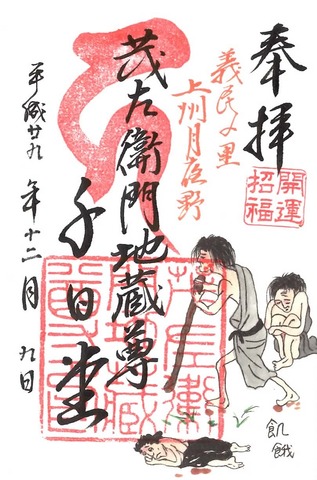 奉拝
開運
招福
義民の里
上州月夜野
茂左衛門地蔵尊
千日堂
平成廿九年十二月九日
飢餓